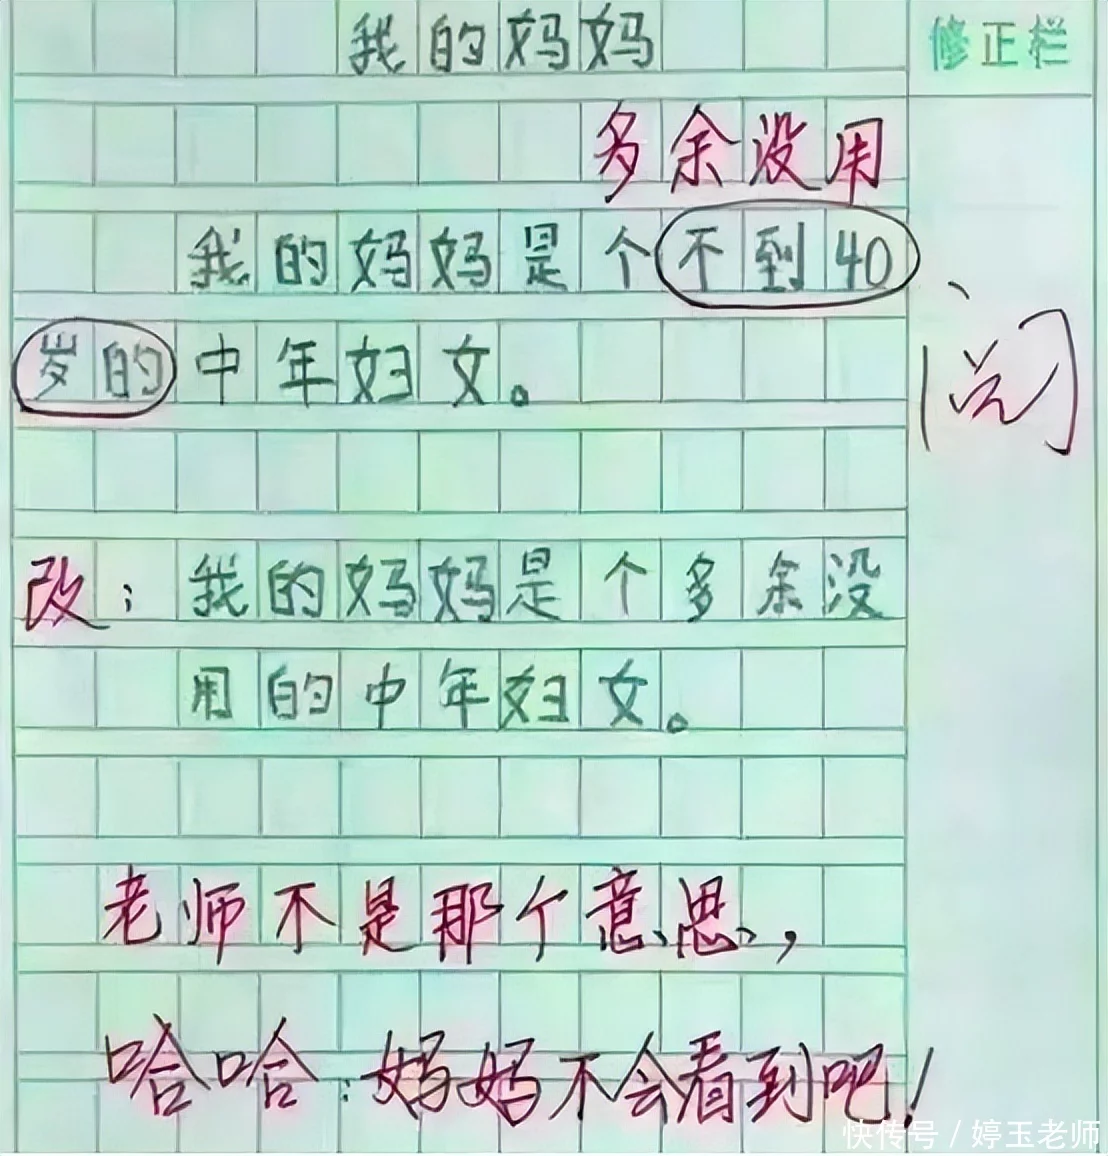 我的妈妈
修正栏
多余没用
我的妈妈是个不到40
岁的中年妇女。
阅
改：我的妈妈是个多余没
用的中年妇女。
老师不是那个意思，
哈哈：妈妈不会看到吧！
快传号／婷玉老师